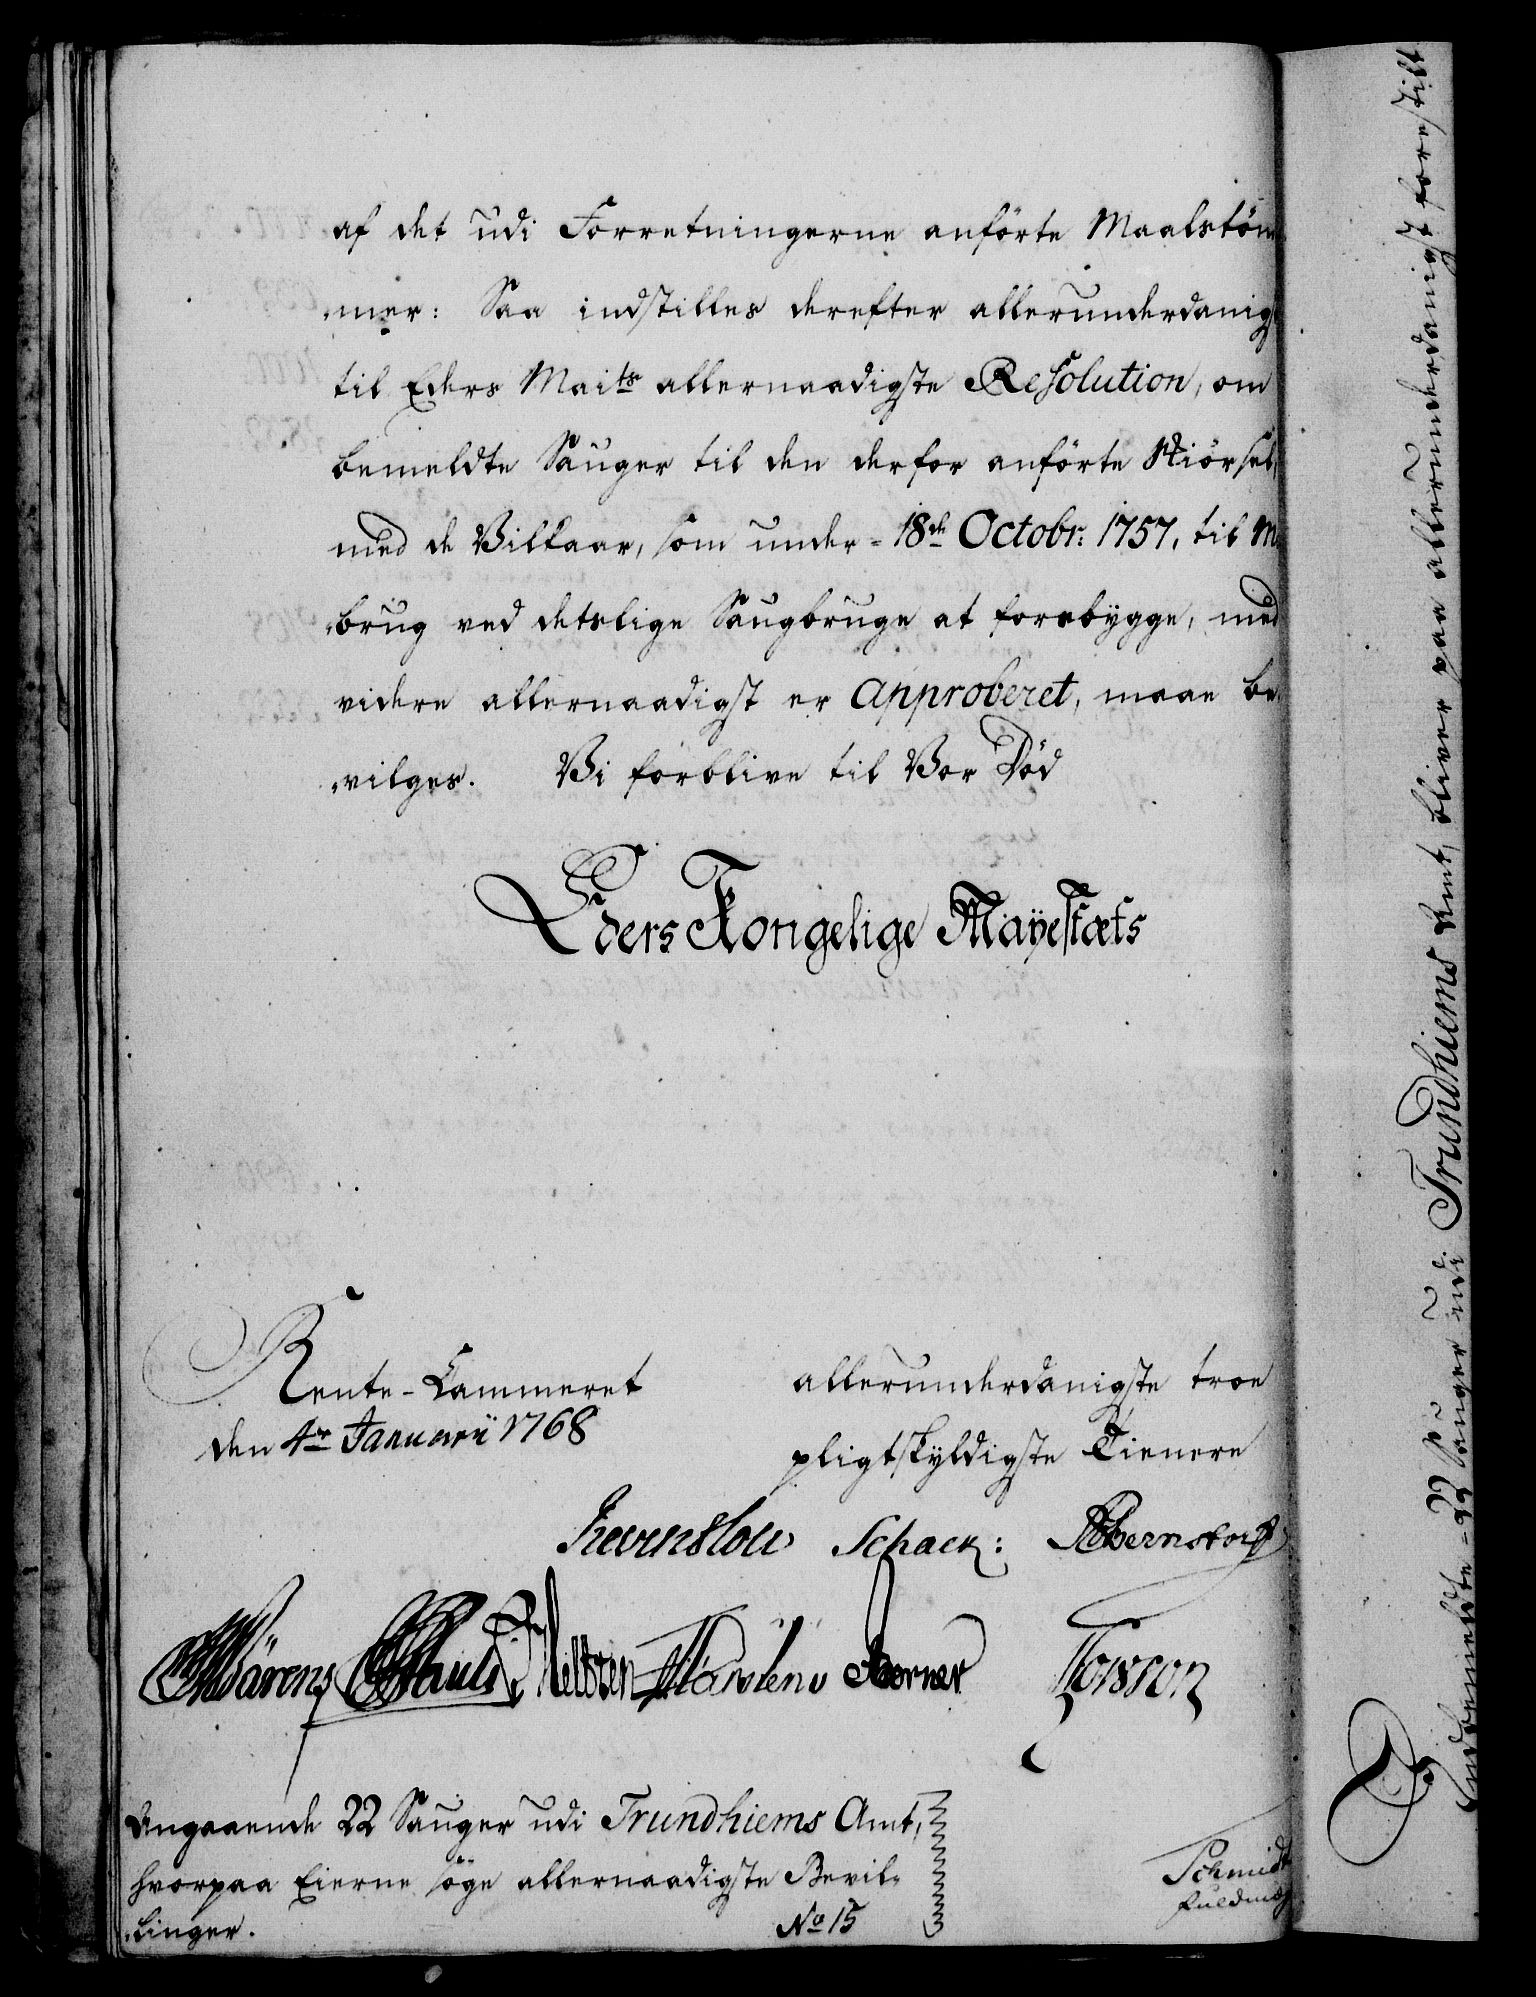 af det udi Forretningerne anførte Maalstøm
mer: Saa indstilles derefter allerunderdanigst
til Eders Maits allernaadigste Resolution, om
bemeldte Sauger til den derfor anførte Skiørsel,
med de Vilkaar, som under = 18de Octobr: 1757, til M
brug ved detslige Saugbruge at forebygge, med
videre allernaadigst er Approberet, maae be
vilges. Vi forblive til Vor Død
Eders Kongelige Mayestæts
Rente-Cammeret
den 4de Januarii 1768
allerunderdanigste troe
pligtskyldigste Tienere
Reventlow Schack: Bernstorff
Wärens Pauli Heltzen Karstens Korner
Angaaende 22 Sauger udi Trundhiems Amt,
hvorpaa Eierne søge allernaadigste Bevil-
linger.
No 15
Schmidt
fuldmæg
Indbemeldte = 22 Sauger udi Trundhiems Amt, bliver paa allerunderdanigst forestilt